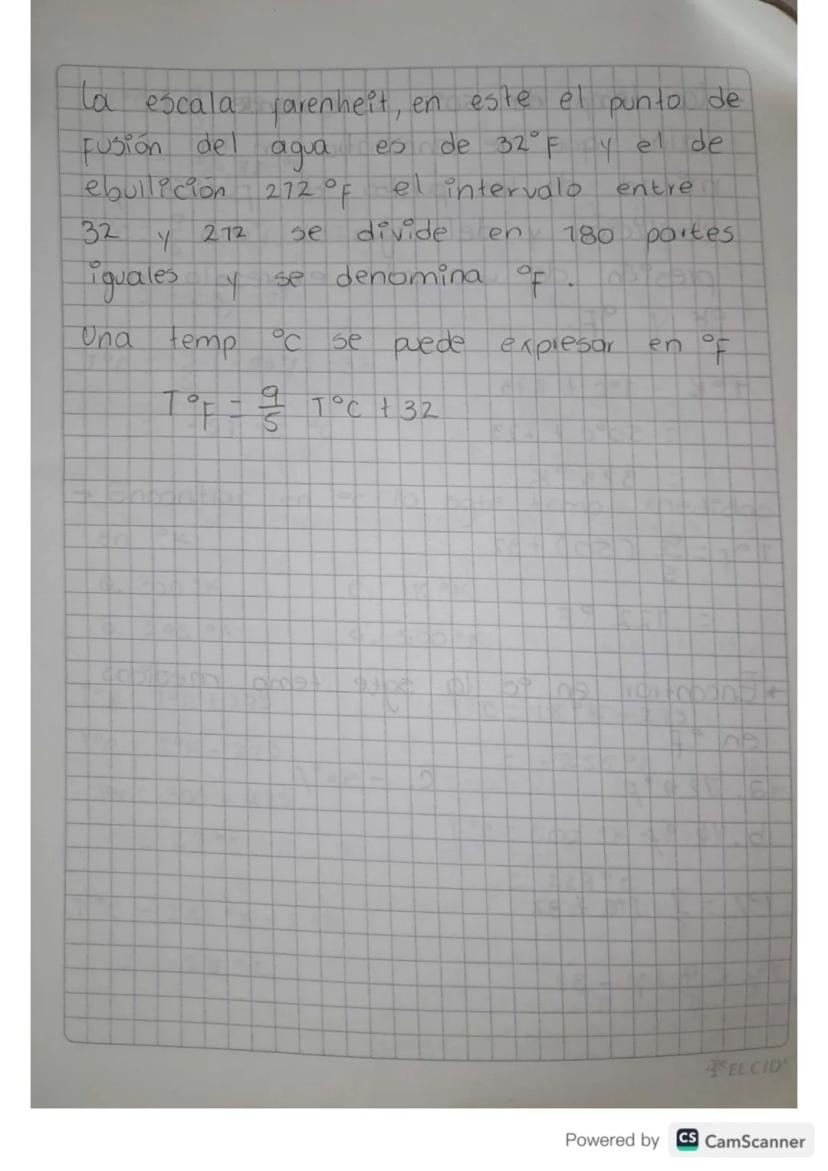 la escala farenheit, en este el punto de
fusión del agua es de 32°F y el de
ebullición 212°F el intervalo entre
32 y 212 se divide en 180 partes
iguales y se denomina °F.
Una temp °C se puede expresar en °F
T°F = 9/5 T°C + 32
EL CID
Powered by CS CamScanner